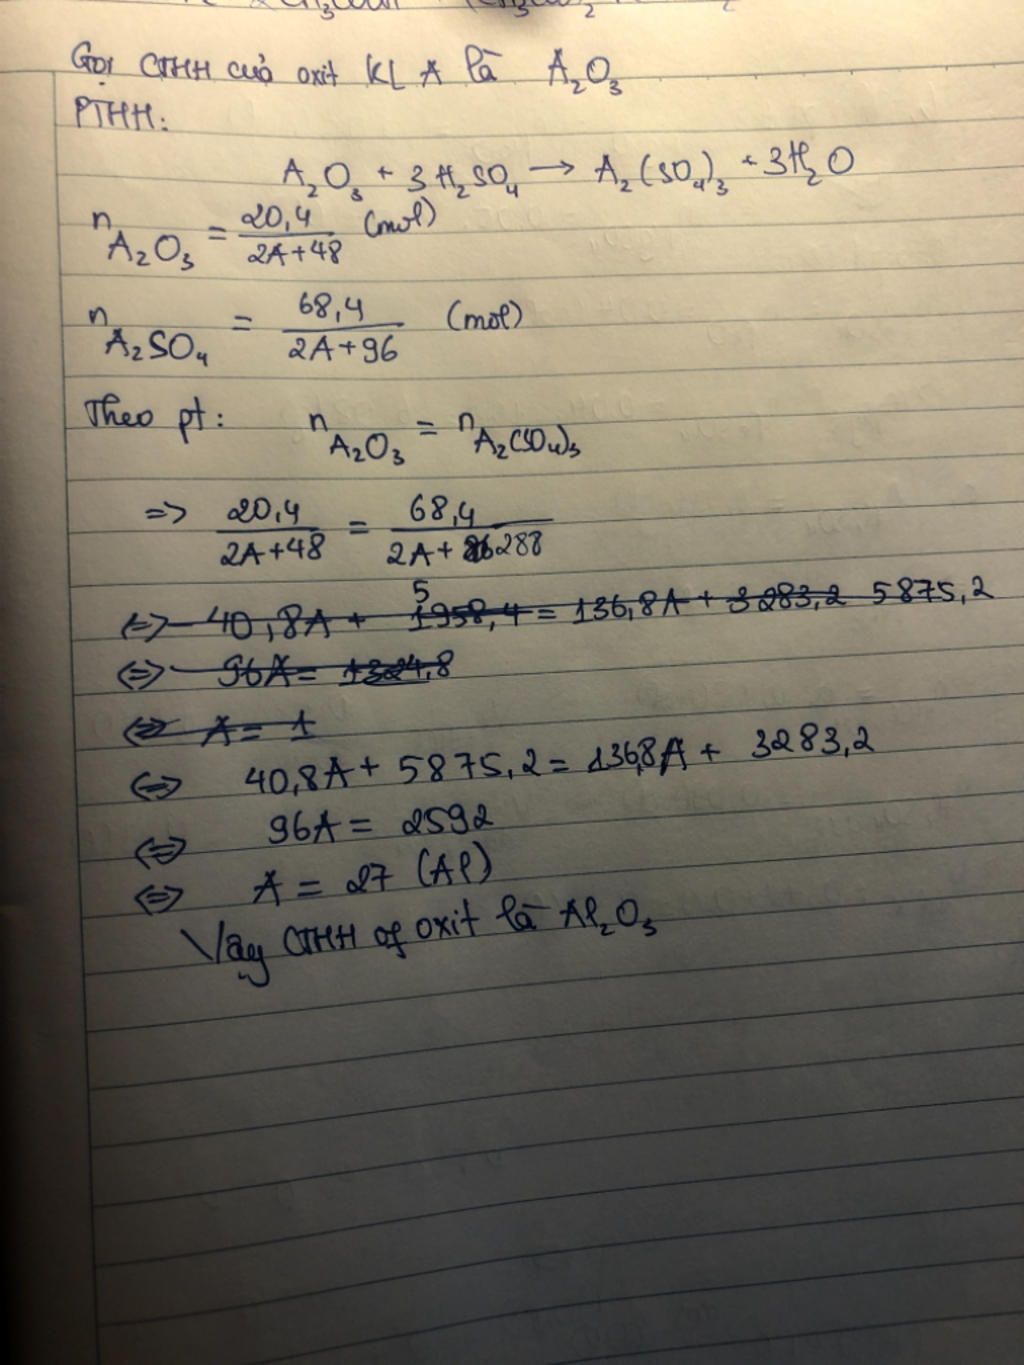 Gọi CTHH của oxit KL A là A₂O₃
PTHH:
A₂O₃ + 3H₂SO₄ → A₂(SO₄)₃ + 3H₂O
n A₂O₃ = 20,4 / 2A+48 (mol)
n A₂SO₄ = 68,4 / 2A+96 (mol)
Theo pt: n A₂O₃ = n A₂(SO₄)₃
=> 20,4 / 2A+48 = 68,4 / 2A+288
<=> 40,8A + 1958,4 = 136,8A + 3283,2 5875,2
<=> 96A = 1324,8
<=> A = 1
<=> 40,8A + 5875,2 = 136,8A + 3283,2
<=> 96A = 2592
<=> A = 27 (Al)
Vậy CTHH of oxit là Al₂O₃